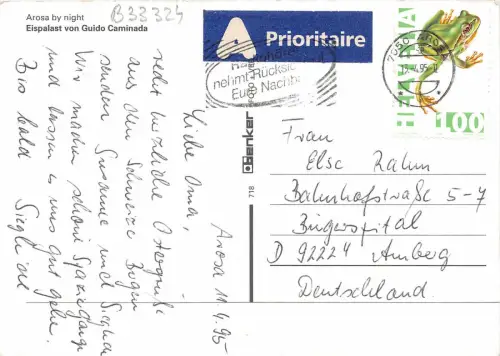 Arosa by night
Eispalast von Guido Caminada
B33324
A Prioritaire
nehmt Rücksicht
Eure Nachb
7050 AROSA
HELVETIA
100
Benker
718
Arosa 11.4.95
Liebe Oma,
recht herzliche Ostergrüße
aus den Schweizer Bergen
senden Susanne und Sieglinde
Wir machen schöne Spaziergänge
und lassen es uns gut gehen.
Bis bald
Sieglinde
Frau
Else Rahm
Bahnhofstraße 5-7
Bürgerspital
D 92224 Amberg
Deutschland